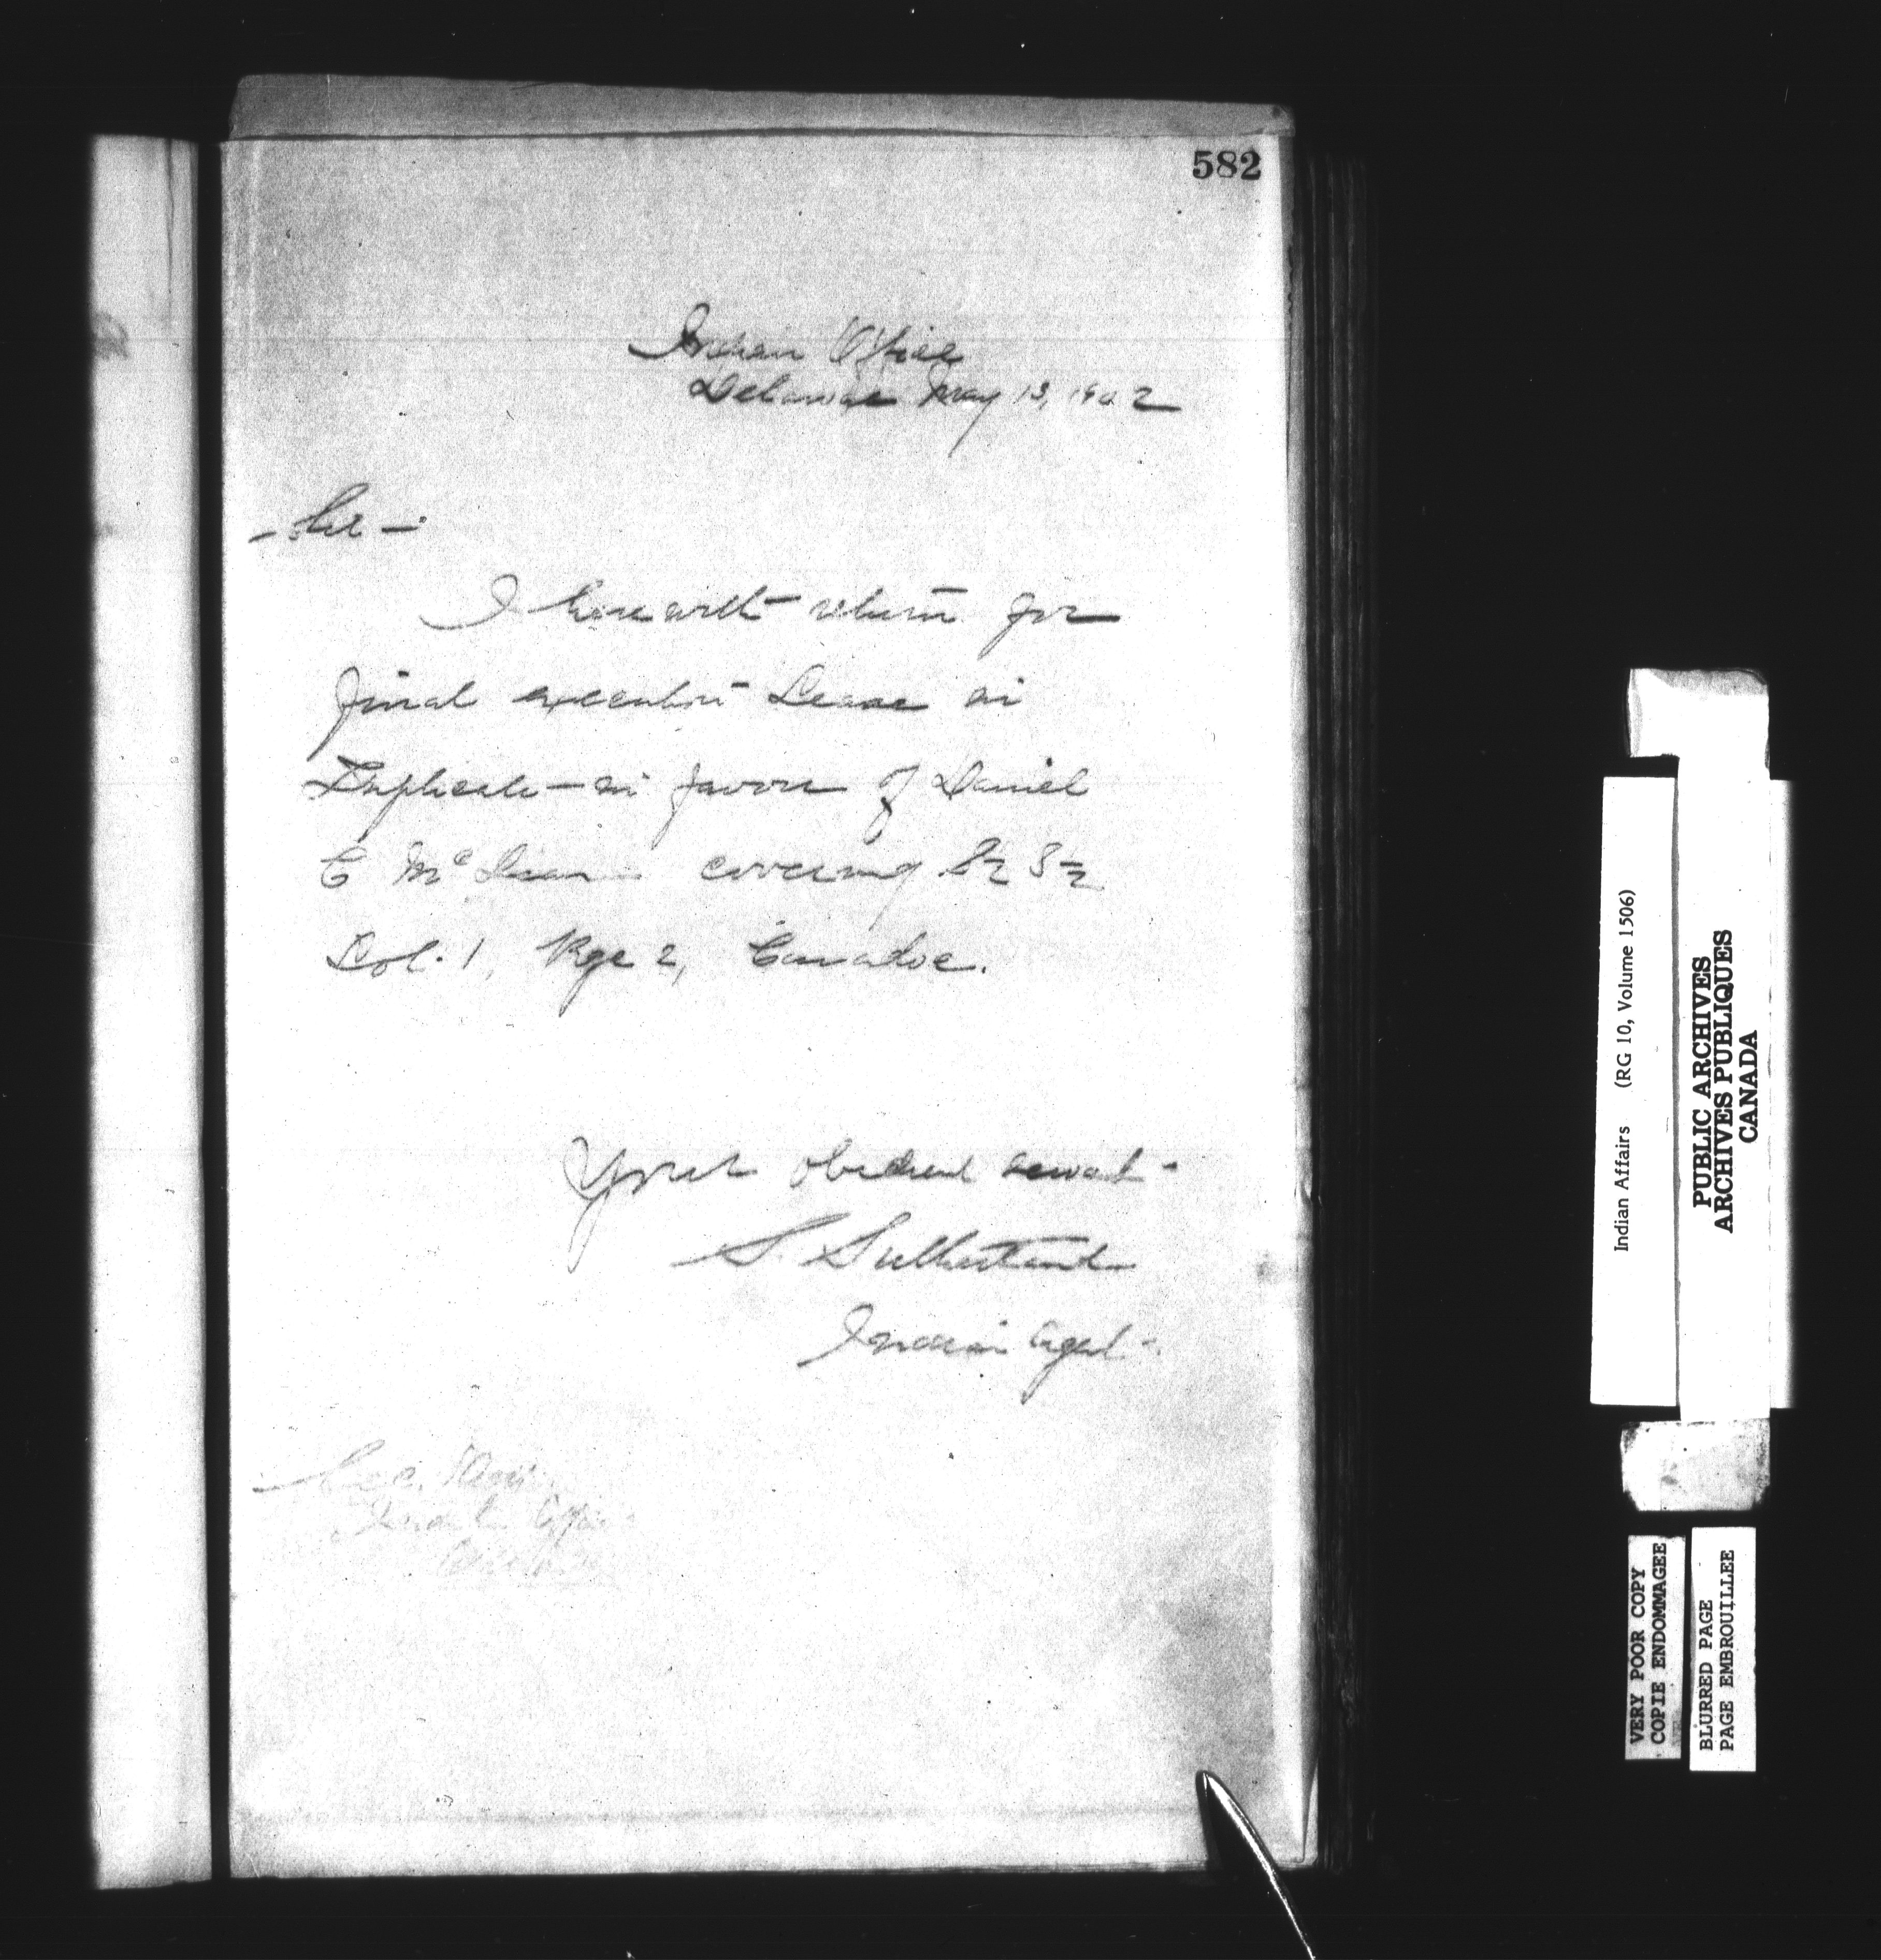 582
Indian Office
Delaware May 13, 1902
- Sir -
I herewith return for
final execution Lease in
Triplicate in favor of Daniel
C McLean covering S½ S½
Lot 1, Rge 2, Caradoc.
Your obedient servant
S. Sutherland
Indian Agent
Sec. Dept.
Indian Affairs
Ottawa
Indian Affairs (RG 10, Volume 1506)
PUBLIC ARCHIVES
ARCHIVES PUBLIQUES
CANADA
VERY POOR COPY
COPIE ENDOMMAGEE
BLURRED PAGE
PAGE EMBROUILLEE